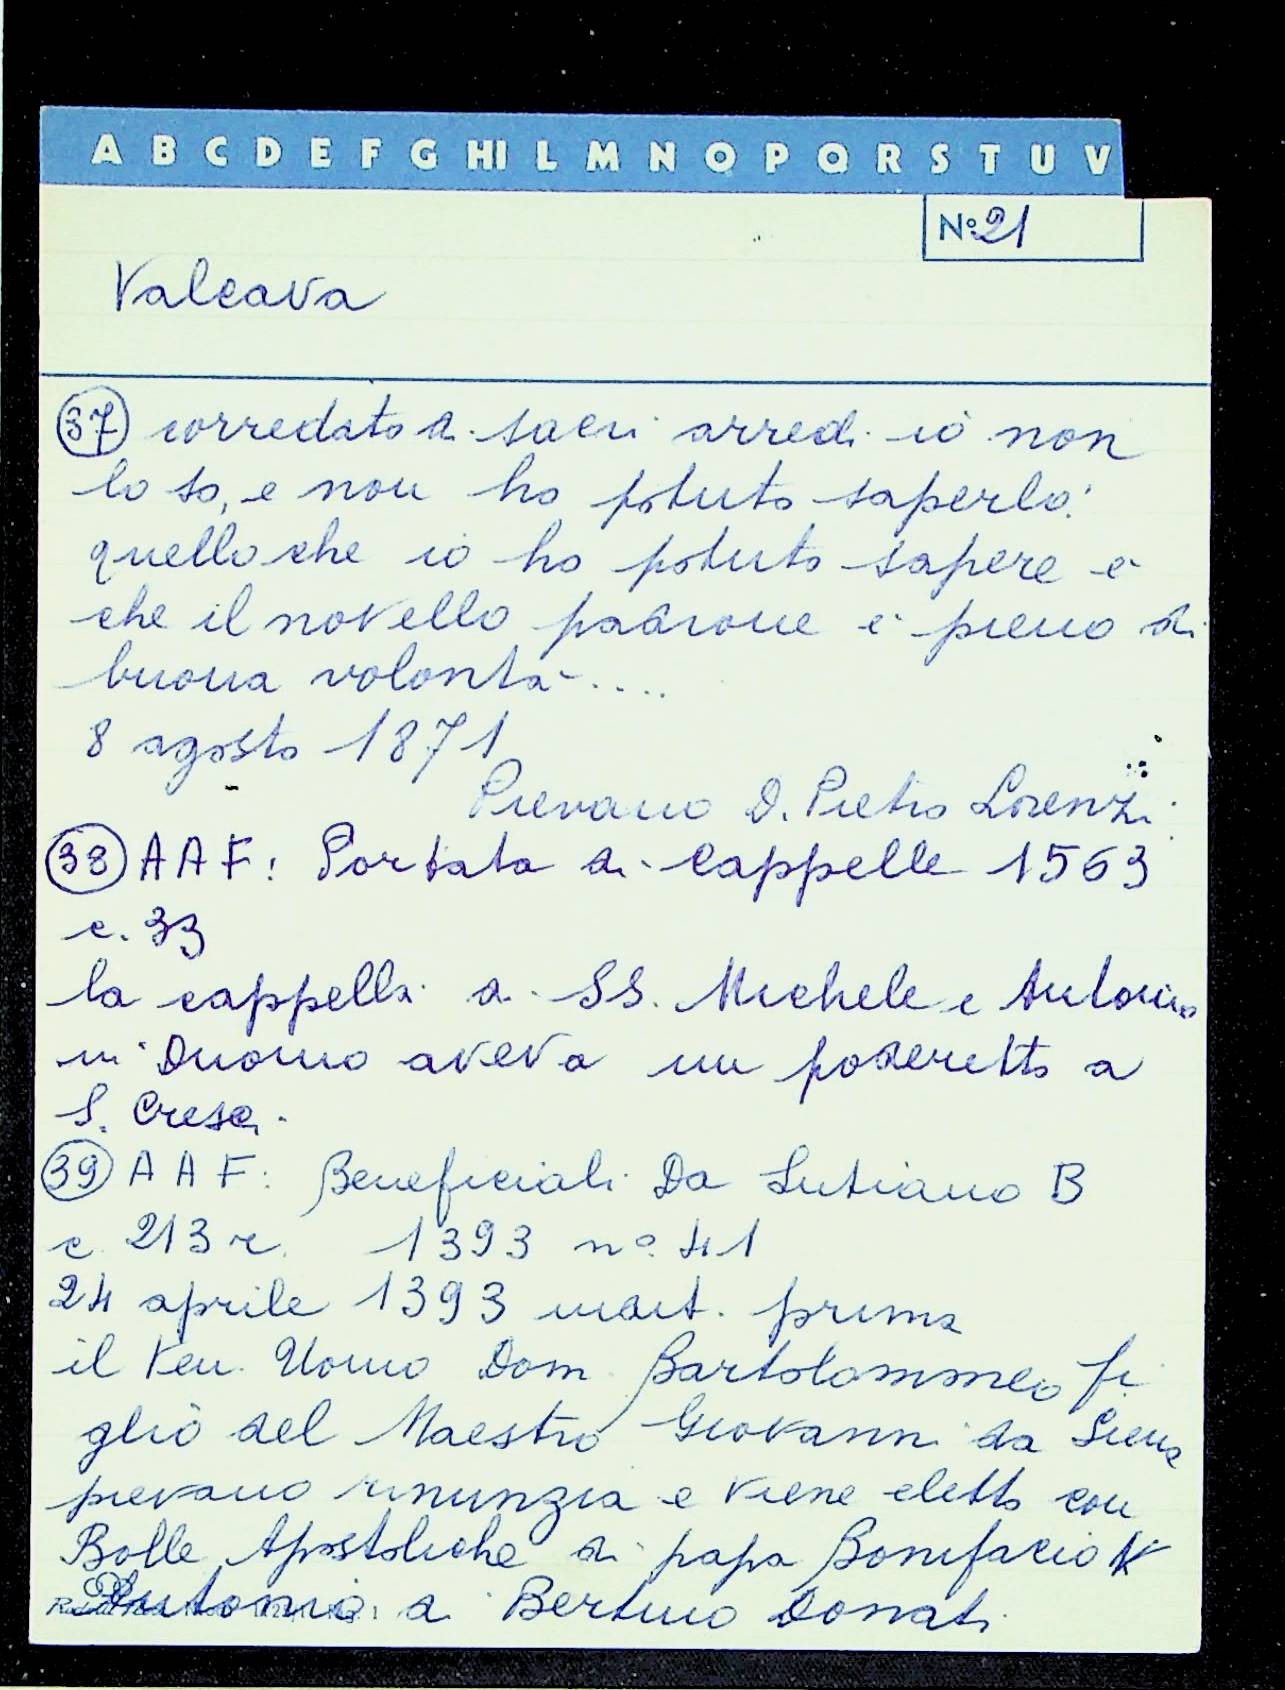 A B C D E F G HI L M N O P Q R S T U V
No 21
Valcava
37 corredato di sacri arredi io non
lo so, e non ho potuto saperlo:
quello che io ho potuto sapere è
che il novello padrone è pieno di
buona volontà ....
8 agosto 1871
Pievano D. Pietro Lorenzi
38 AAF: Portata di Cappelle 1563
c. 33
la cappella di SS. Michele e Antonio
in Duomo aveva un poderetto a
S. Cresci.
39 AAF: Beneficiali Da Lutiano B
c. 213 r. 1393 n° 41
24 aprile 1393 indit. prima
il Ven. Uomo Dom. Bartolommeo fi
glio del Maestro Giovanni da Siena
pievano rinunzia e viene eletto con
Bolle Apostoliche di papa Bonifacio IX
Antonio di Bertino Donati